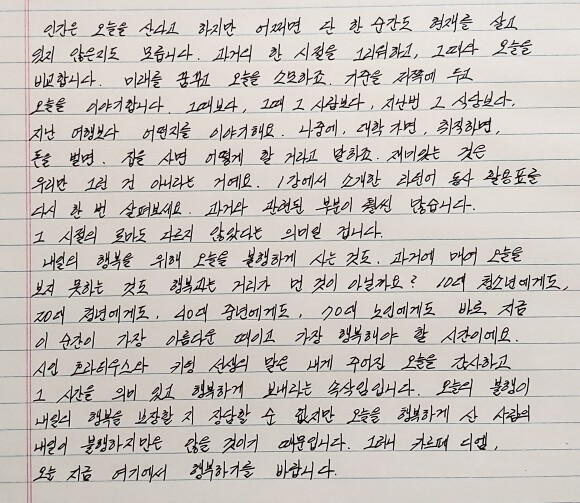 인간은 오늘을 산다고 하지만 어쩌면 단 한 순간도 현재를 살고
있지 않은지도 모릅니다. 과거의 한 시절을 그리워하고, 그때와 오늘을
비교합니다. 미래를 꿈꾸고 오늘을 소모하죠. 기준을 저쪽에 두고
오늘을 이야기합니다. 그때보다, 그때 그 사람보다, 지난번 그 식당보다,
지난 여행보다 어떤지를 이야기해요. 나중에, 대학 가면, 취직하면,
돈을 벌면, 집을 사면 어떻게 할 거라고 말하죠. 재미있는 것은
우리만 그런 건 아니라는 거예요. 1강에서 소개한 라틴어 동사 활용표를
다시 한 번 살펴보세요. 과거와 관련된 부분이 훨씬 많습니다.
그 시절의 로마도 다르지 않았다는 의미일 겁니다.
내일의 행복을 위해 오늘을 불행하게 사는 것도, 과거에 매여 오늘을
보지 못하는 것도 행복과는 거리가 먼 것이 아닐까요? 10대 청소년에게도,
20대 청년에게도, 40대 중년에게도, 70대 노인에게도 바로 지금
이 순간이 가장 아름다운 때이고 가장 행복해야 할 시간이에요.
시인 호라티우스와 키팅 선생의 말은 내게 주어진 오늘을 감사하고
그 시간을 의미 있고 행복하게 보내라는 속삭임입니다. 오늘의 불행이
내일의 행복을 보장할 지 장담할 순 없지만 오늘을 행복하게 산 사람의
내일이 불행하지만은 않을 것이기 때문입니다. 그러니 카르페 디엠,
오늘 지금 여기에서 행복하기를 바랍니다.